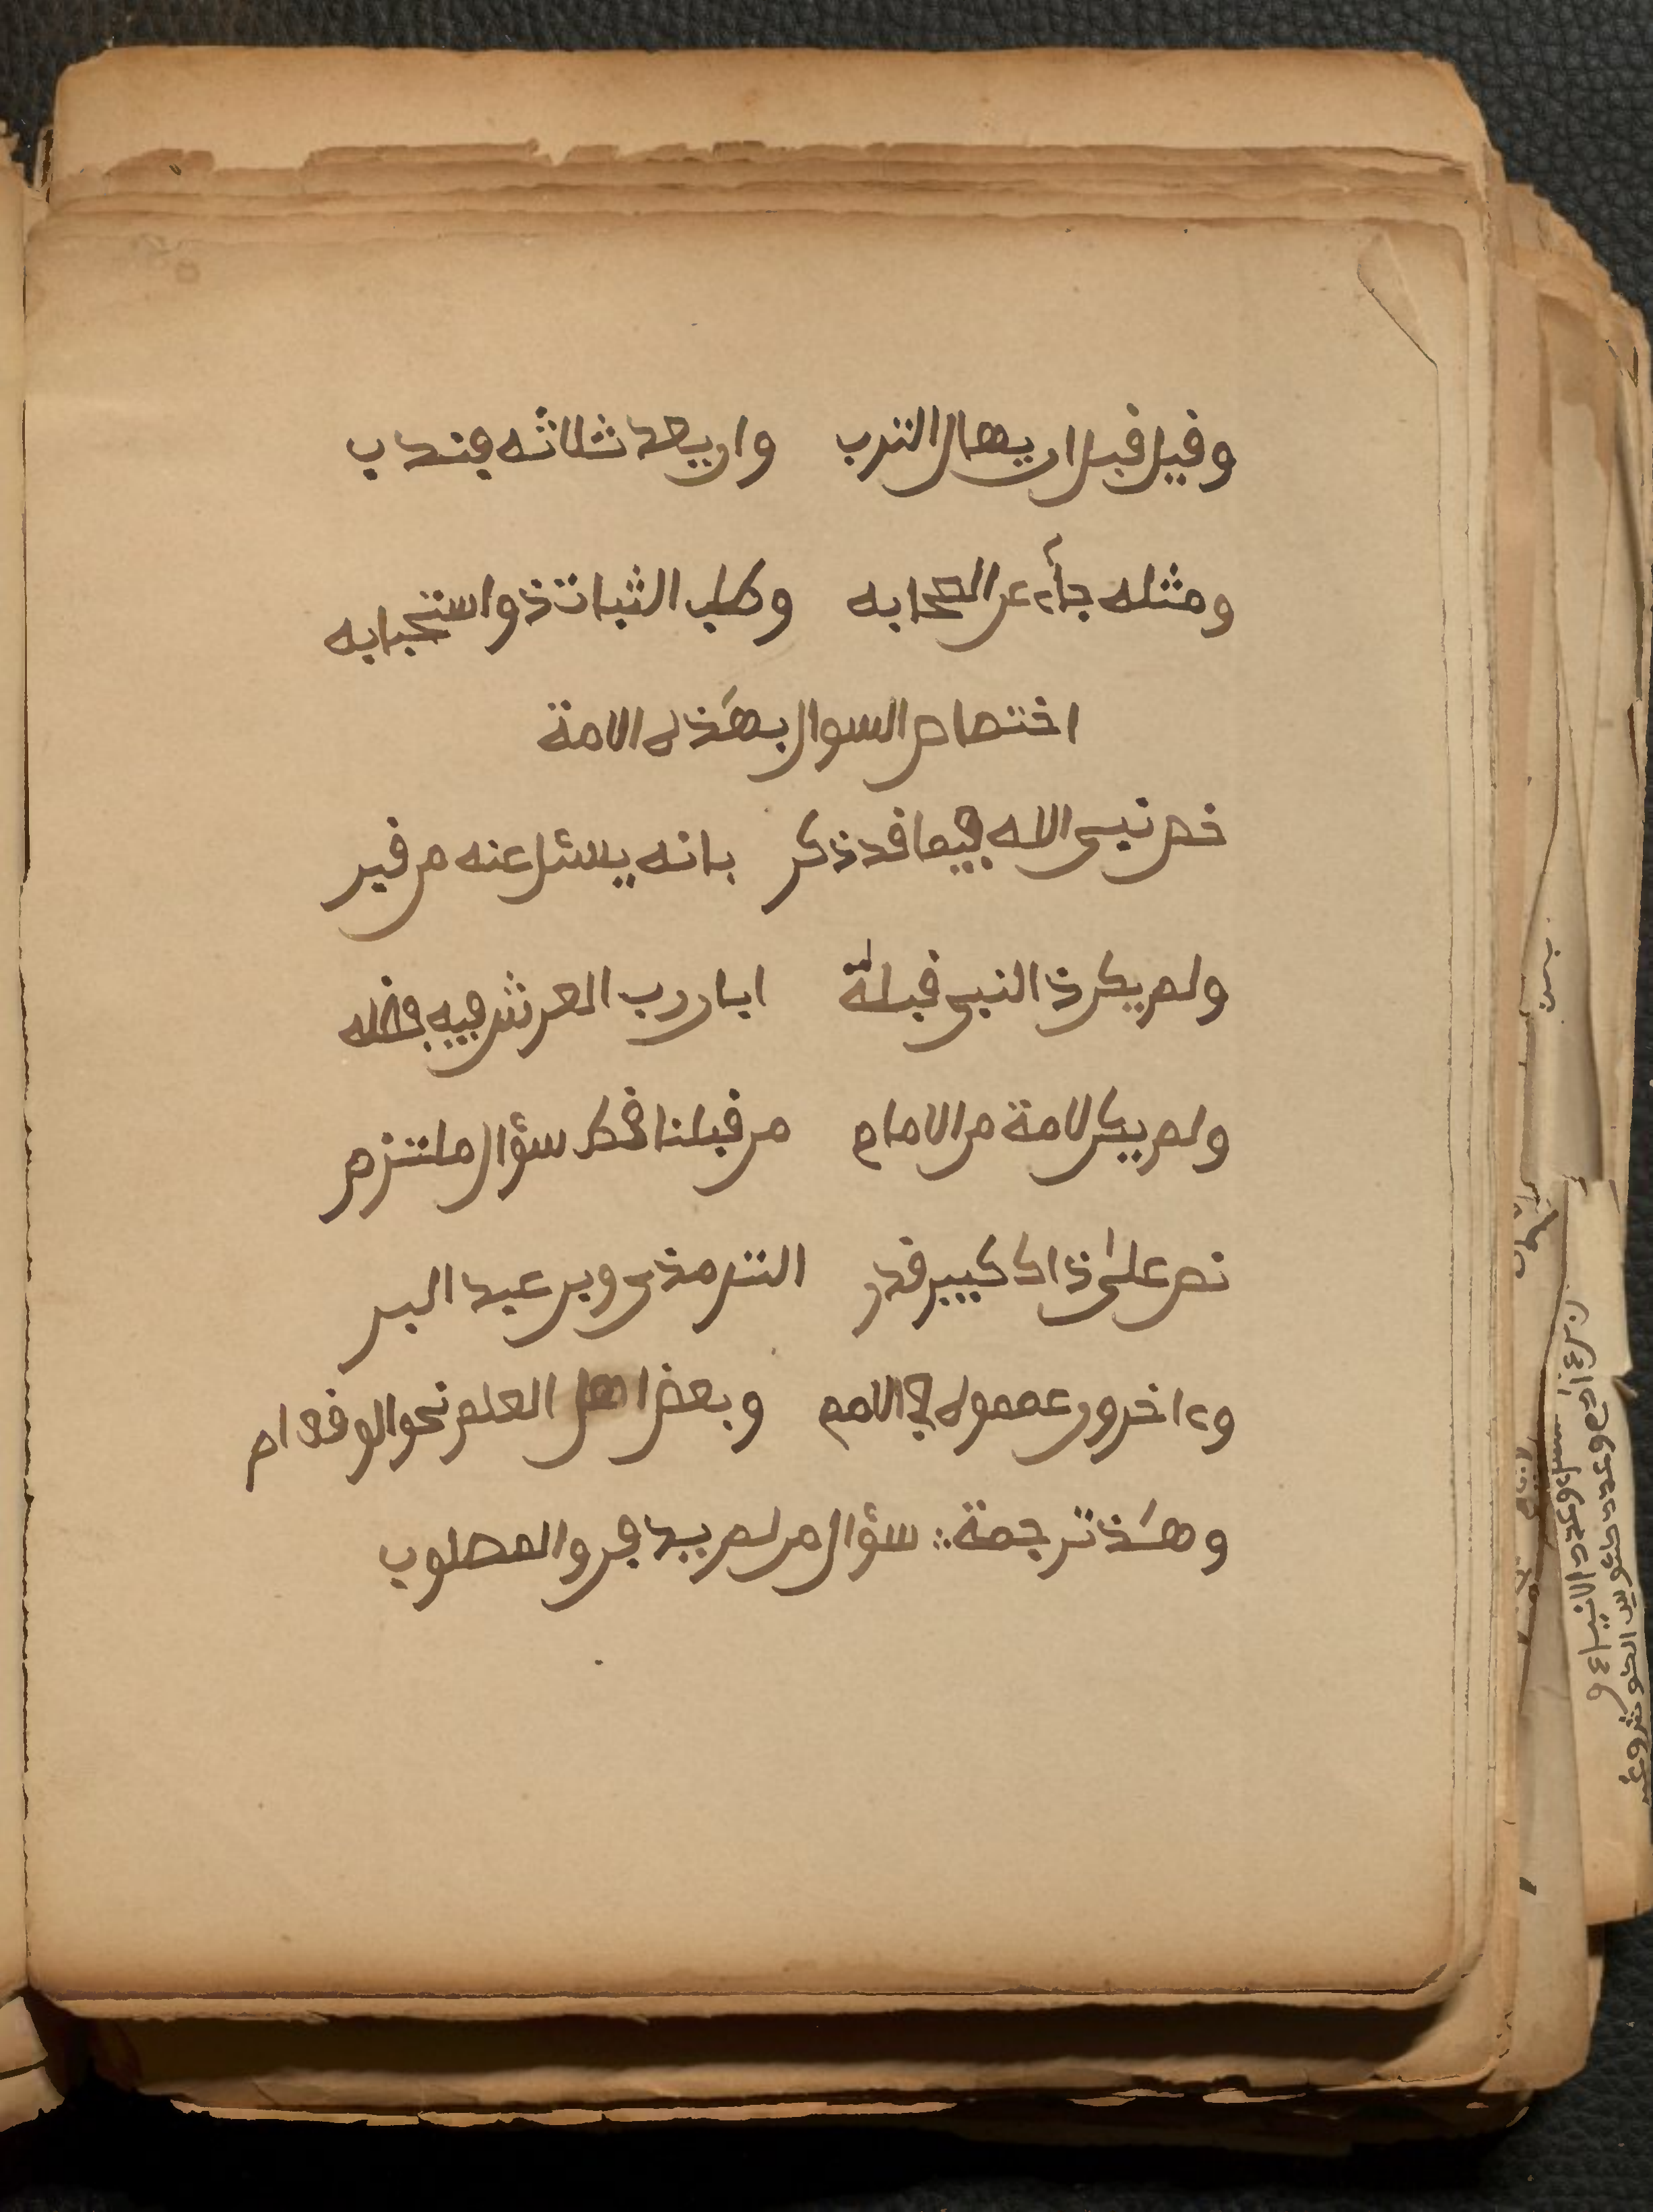 وقيل قبل ان يهال الترب وان يحد ثلاثه فندب
ومثله جاء عن الصحابه وطلب الثبات ذو استحبابه
اختصاص السوال بهذه الامة
خص نبي الاله فيما قد ذكر بانه يسئل عنه من قبر
ولم يكن ذا لنبي قبله ابان رب العرش فيه فضله
ولم يكن لامة من الامام من قبلنا قط سؤال ملتزم
نص على ذاك كبير قدر الترمذي وبن عبد البر
وءاخرون عمموه في الامم وبعض اهل العلم نحو الوقف ام
وهذ ترجمة: سؤال من لم يدفن والمصلوب